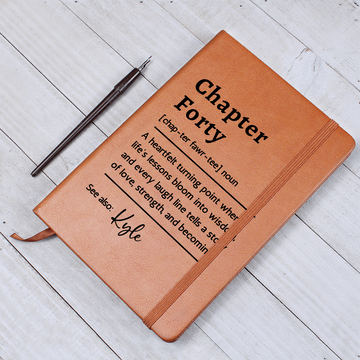 Chapter
Forty
[chap-ter fawr-tee] noun
A heartfelt turning point where
life's lessons bloom into wisdom
and every laugh line tells a story
of love, strength, and becoming
See also:
Kyle